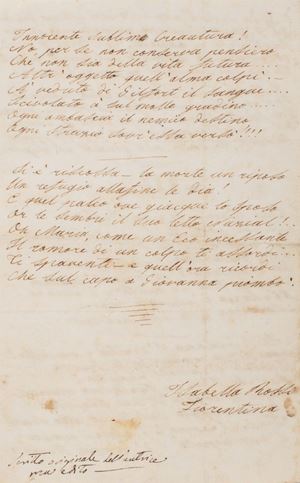 Innocente Sublime Creautura!
No per te non conserva pensiero
Che non sia della vita futura....
Altr' oggetto quell' alma colpì –
A veduto di Gilfort il Sangue....
Scivolato à sul molle gradino....
Ogni ambascia il nemico destino
Ogni Strazio sovr' essa versò!!!
Si è riscossa – la morte un riposo
Un refugio alla fine le dia!
E quel palco ove giacque lo sposo
Or le sembri il suo letto nuzial!..
Oh Maria, come un Eco incessante
Il romore di un colpo ti assordi...
Ti spaventi – e quell' ora ricordi
Che sul capo a Giovanna piombò.
Isabella Rossi
Fiorentina
Scritto originale dell' autrice